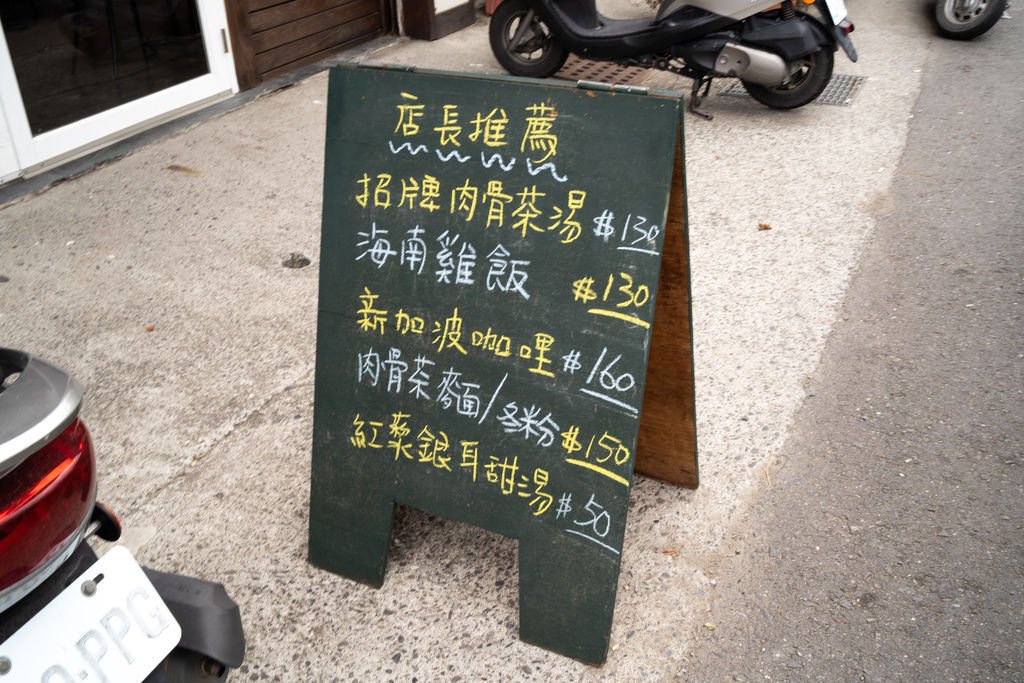 店長推薦
招牌肉骨茶湯 $130
海南雞飯 $130
新加波咖哩 $160
肉骨茶麵/冬粉 $150
紅棗銀耳甜湯 $50
PPG